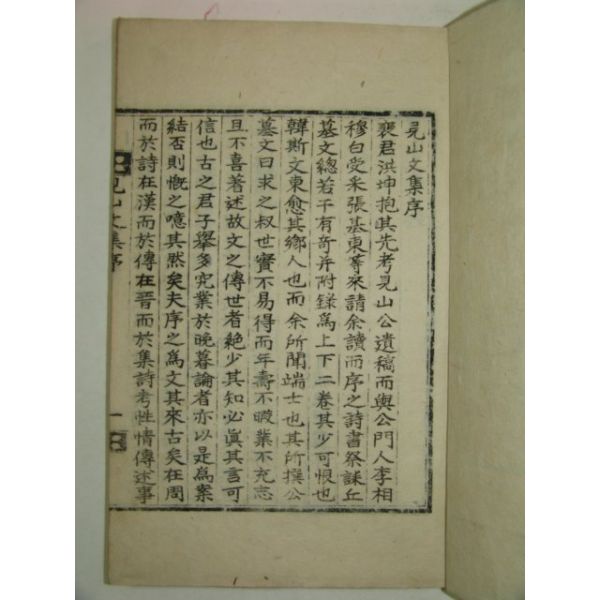 見山文集序
裵君洪坤抱其先考見山公遺稿而與公門人李相
穆白受采張基東等來請余讀而序之詩書祭誄丘
墓文總若干有奇并附錄爲上下二卷其少可恨也
韓斯文東愈其鄉人也而余所聞端士也其所撰公
墓文曰求之叔世實不易得而年壽不暇業不充志
且不喜著述故文之傳世者絶少其知必眞其言可
信也古之君子擧多究業於晩暮論者亦以是爲案
結否則慨之噫其然矣夫序之爲文其來古矣在周
而於詩在漢而於傳在晋而於集詩考性情傳述事
見山文集序
一